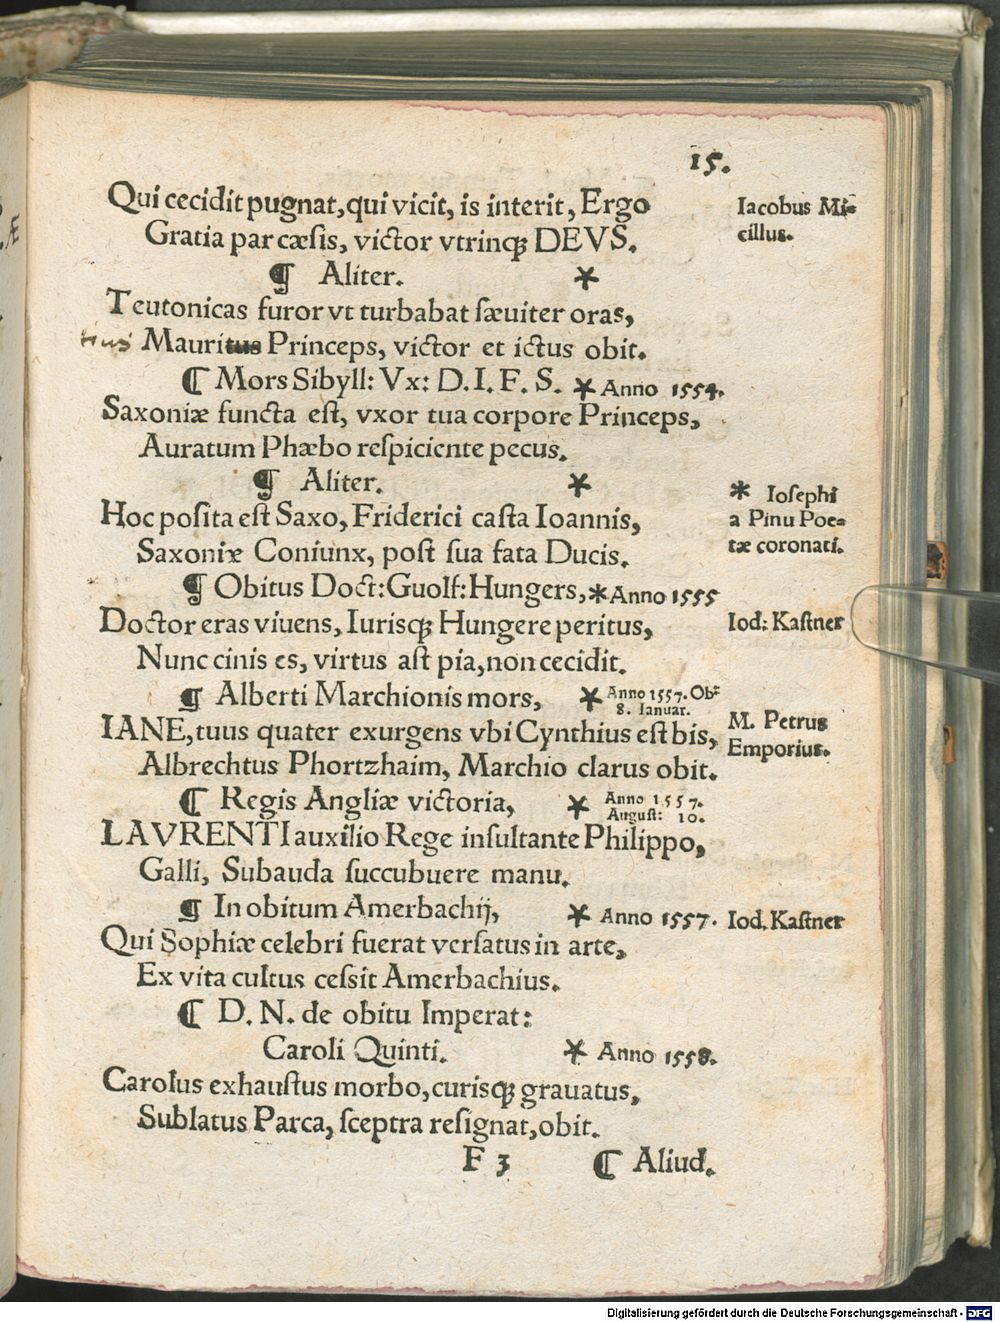 15.
Qui cecidit pugnat, qui vicit, is interit, Ergo
Iacobus Mi=
cillus.
Gratia par cæsis, victor vtrinqꝫ DEVS.
¶ Aliter. *
Teutonicas furor vt turbabat sæuiter oras,
tius Mauritus Princeps, victor et ictus obit.
¶ Mors Sibyll: Vx: D. I. F. S. * Anno 1554.
Saxoniæ functa est, vxor tua corpore Princeps,
Auratum Phæbo respiciente pecus.
¶ Aliter. *
* Iosephi
a Pinu Poe=
tæ coronati.
Hoc posita est Saxo, Friderici casta Ioannis,
Saxoniæ Coniunx, post sua fata Ducis.
¶ Obitus Doct: Guolf: Hungers, * Anno 1555
Doctor eras viuens, Iurisqꝫ Hungere peritus,
Iod: Kastner
Nunc cinis es, virtus ast pia, non cecidit.
¶ Alberti Marchionis mors, * Anno 1557. Ob:
8. Ianuar.
IANE, tuus quater exurgens vbi Cynthius est bis,
M. Petrus
Emporius.
Albrechtus Phortzhaim, Marchio clarus obit.
¶ Regis Angliæ victoria, * Anno 1557.
August: 10.
LAVRENTI auxilio Rege insultante Philippo,
Galli, Subauda succubuere manu.
¶ In obitum Amerbachij, * Anno 1557. Iod. Kastner
Qui Sophiæ celebri fuerat versatus in arte,
Ex vita cultus cessit Amerbachius.
¶ D. N. de obitu Imperat:
Caroli Quinti. * Anno 1558.
Carolus exhaustus morbo, curisqꝫ grauatus,
Sublatus Parca, sceptra resignat, obit.
F 3 ¶ Aliud.
Digitalisierung gefördert durch die Deutsche Forschungsgemeinschaft - DFG